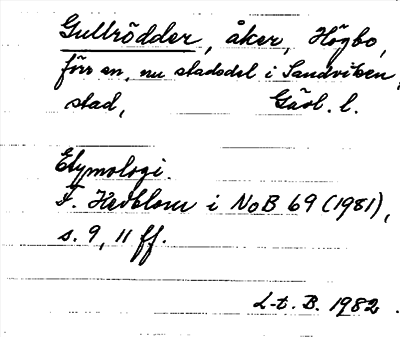 Gullrödder, åker, Högbo,
förs en, nu stadsdel i Sandviken,
stad, Gävl. l.
Etymologi.
F. Hedblom i NoB 69 (1981),
s. 9, 11 ff.
L-t. B. 1982.